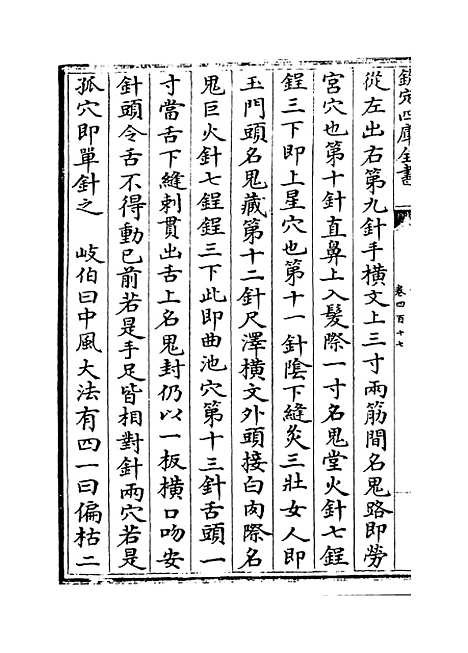 欽定四庫全書
卷四百十七
從左出右第九針手橫文上三寸兩筋間名鬼路即勞
宮穴也第十針直鼻上入髮際一寸名鬼堂火針七鋥
鋥三下即上星穴也第十一針陰下縫灸三壯女人即
玉門頭名鬼藏第十二針尺澤橫文外頭接白肉際名
鬼巨火針七鋥鋥三下此即曲池穴第十三針舌頭一
寸當舌下縫刺貫出舌上名鬼封仍以一板橫口吻安
針頭令舌不得動已前若是手足皆相對針兩穴若是
孤穴即單針之　岐伯曰中風大法有四一曰偏枯二